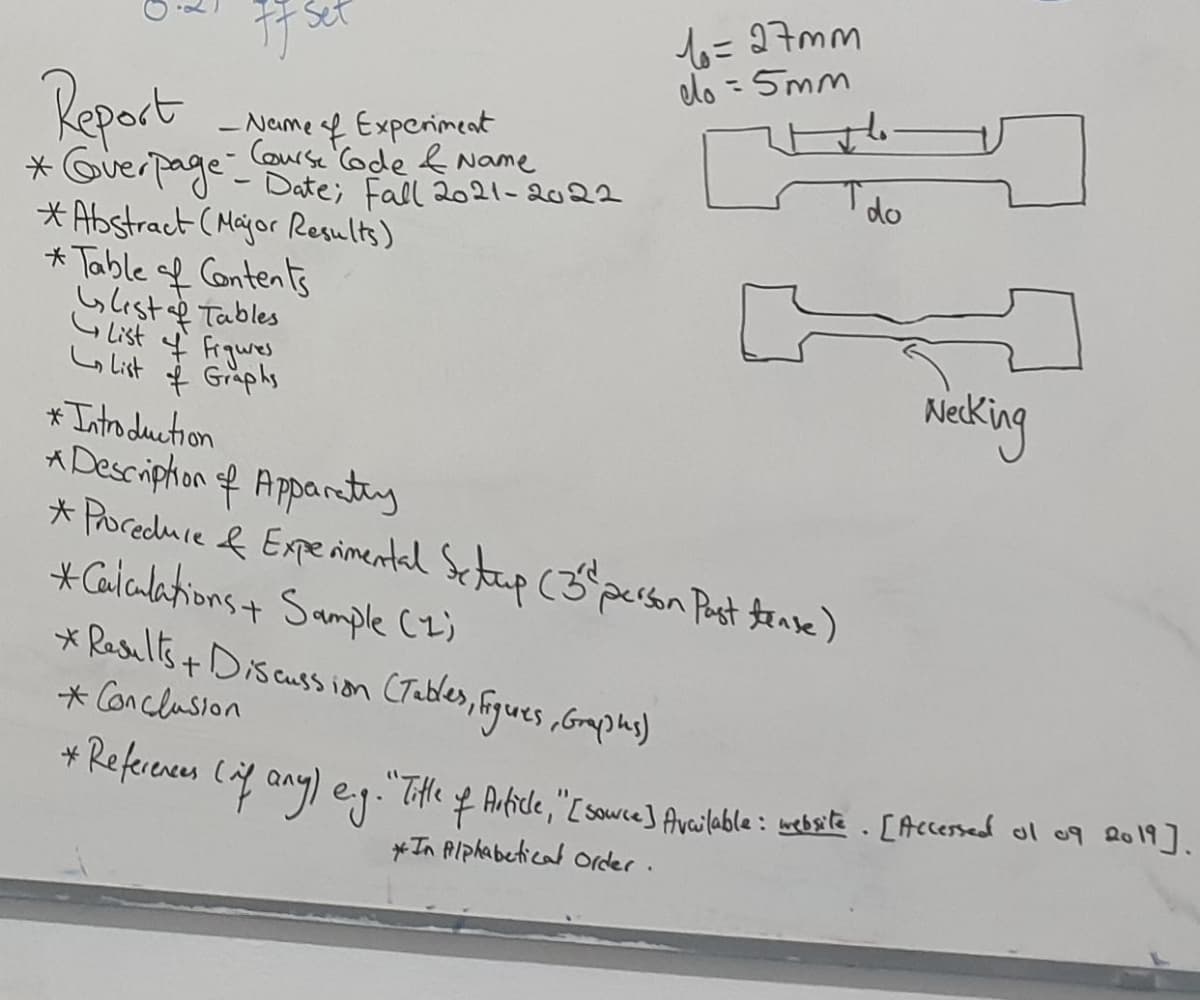 0.2% offset
Report
- Name of Experiment
* Coverpage - Course Code & Name
- Date; Fall 2021-2022
* Abstract (Major Results)
* Table of Contents
↳ List of Tables
↳ List of Figures
↳ List of Graphs
* Introduction
* Description of Apparatus
* Procedure & Experimental Setup (3rd person Past tense)
* Calculations + Sample (1);
* Results + Discussion (Tables, Figures, Graphs)
* Conclusion
* References (if any) e.g. "Title of Article," [source] Available: website. [Accessed 01 09 2019].
* In Alphabetical order.
l₀ = 27mm
d₀ = 5mm
l₀
d₀
Necking